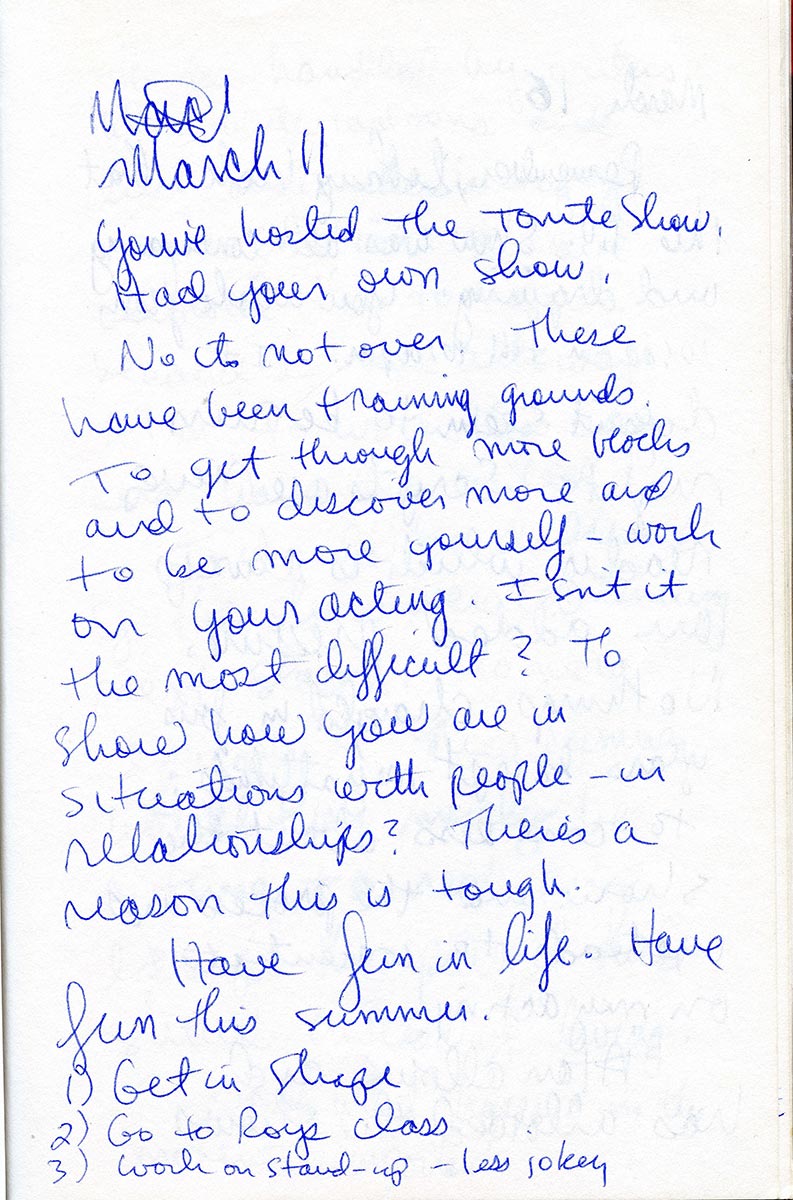 March 11
You've hosted the Tonite Show.
Had your own show.
No its not over. These
have been training grounds.
To get through more blocks
and to discover more and
to be more yourself – work
on your acting. Isnt it
the most difficult? To
show how you are in
situations with people – in
relationships? There's a
reason this is tough.
Have fun in life. Have
fun this summer.
1) Get in Shape
2) Go to Roys class
3) work on stand-up – less jokey